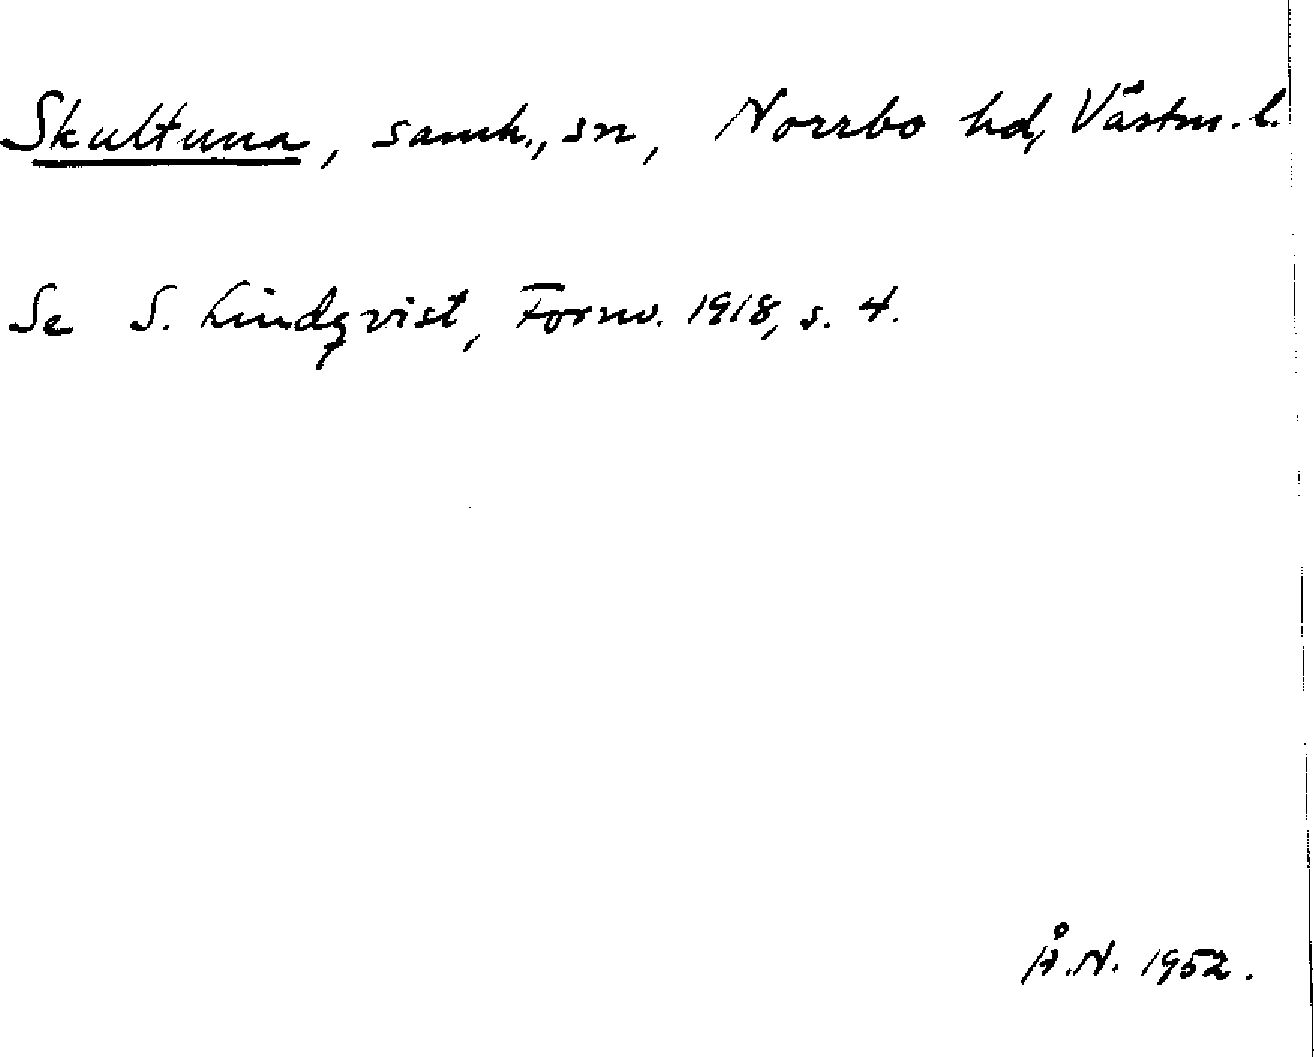 Skultuna, samh., sn, Norrbo hd, Västm. l.
Se S. Lindqvist, Fornv. 1918, s. 4.
Å.N. 1952.